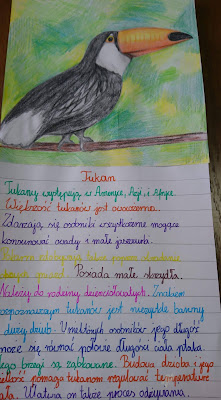 Tukan
Tukany występują w Ameryce, Azji i Afryce.
Większość tukanów jest owocożerna.
Zdarzają się osobniki wszystkożerne mogące
konsumować owady i małe jaszczurki.
Posiada małe skrzydła.
Należy do rodziny dzięciołowatych. Znakiem
rozpoznawczym tukanów jest niezwykle barwny
i duży dziób. U niektórych osobników jego długość
może się równać połowie długości ciała ptaka.
Jego brzegi są ząbkowane. Budowa dzioba i jego
wielkość pomaga tukanom regulować temperaturę
ciała. Ułatwia on także proces odżywiania.